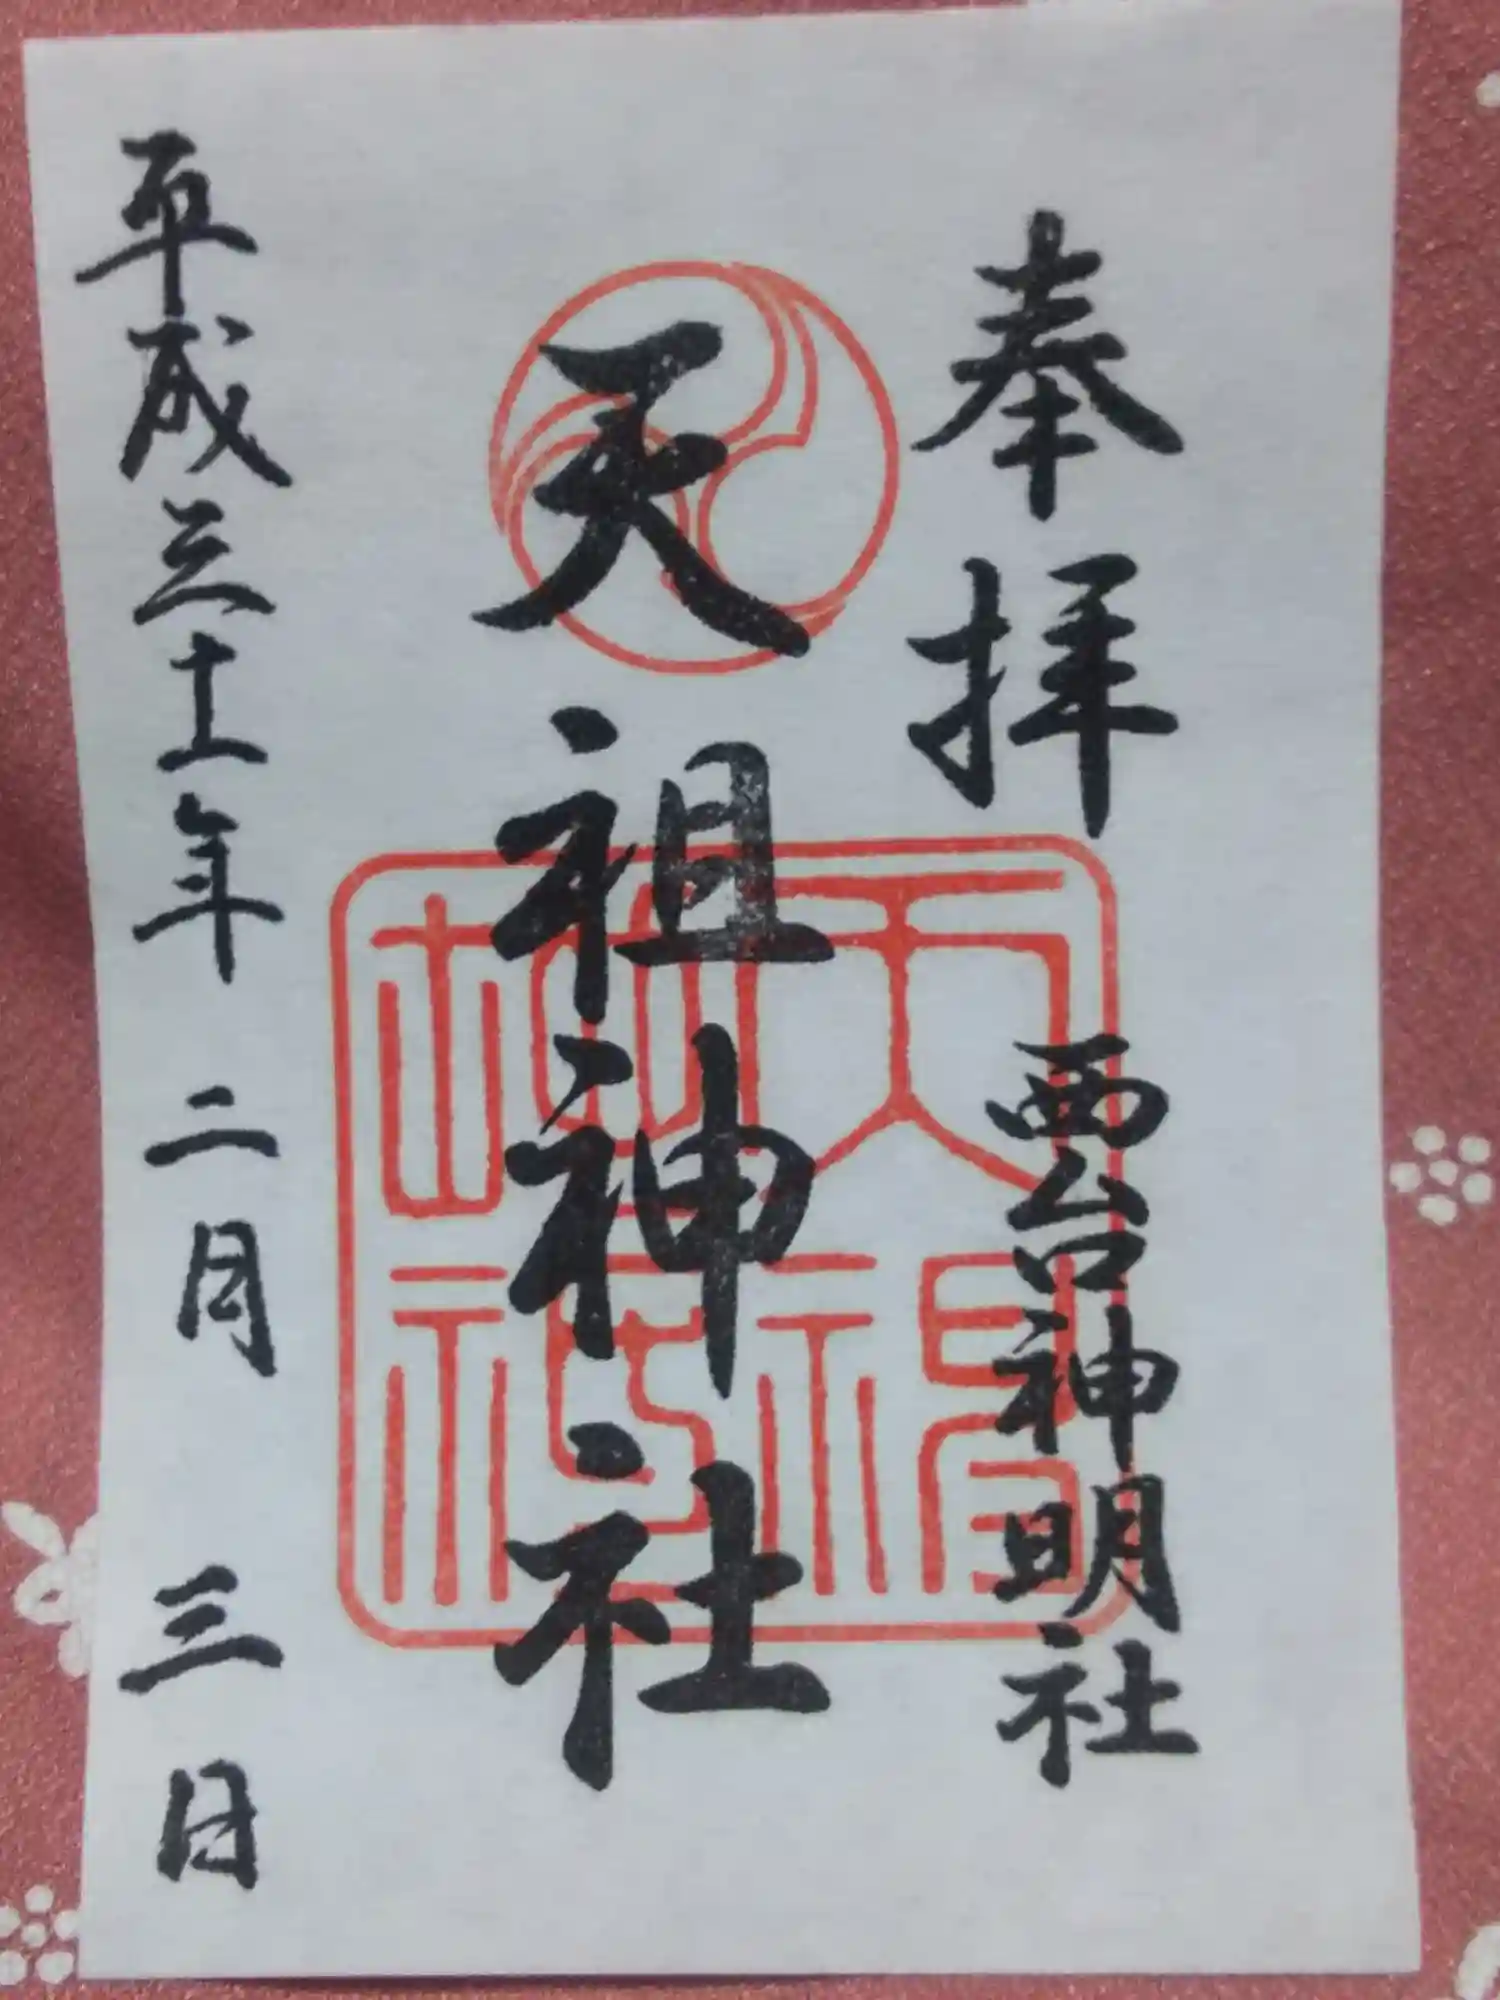 奉拝
西台神明社
天祖神社
平成三十一年 二月 三日